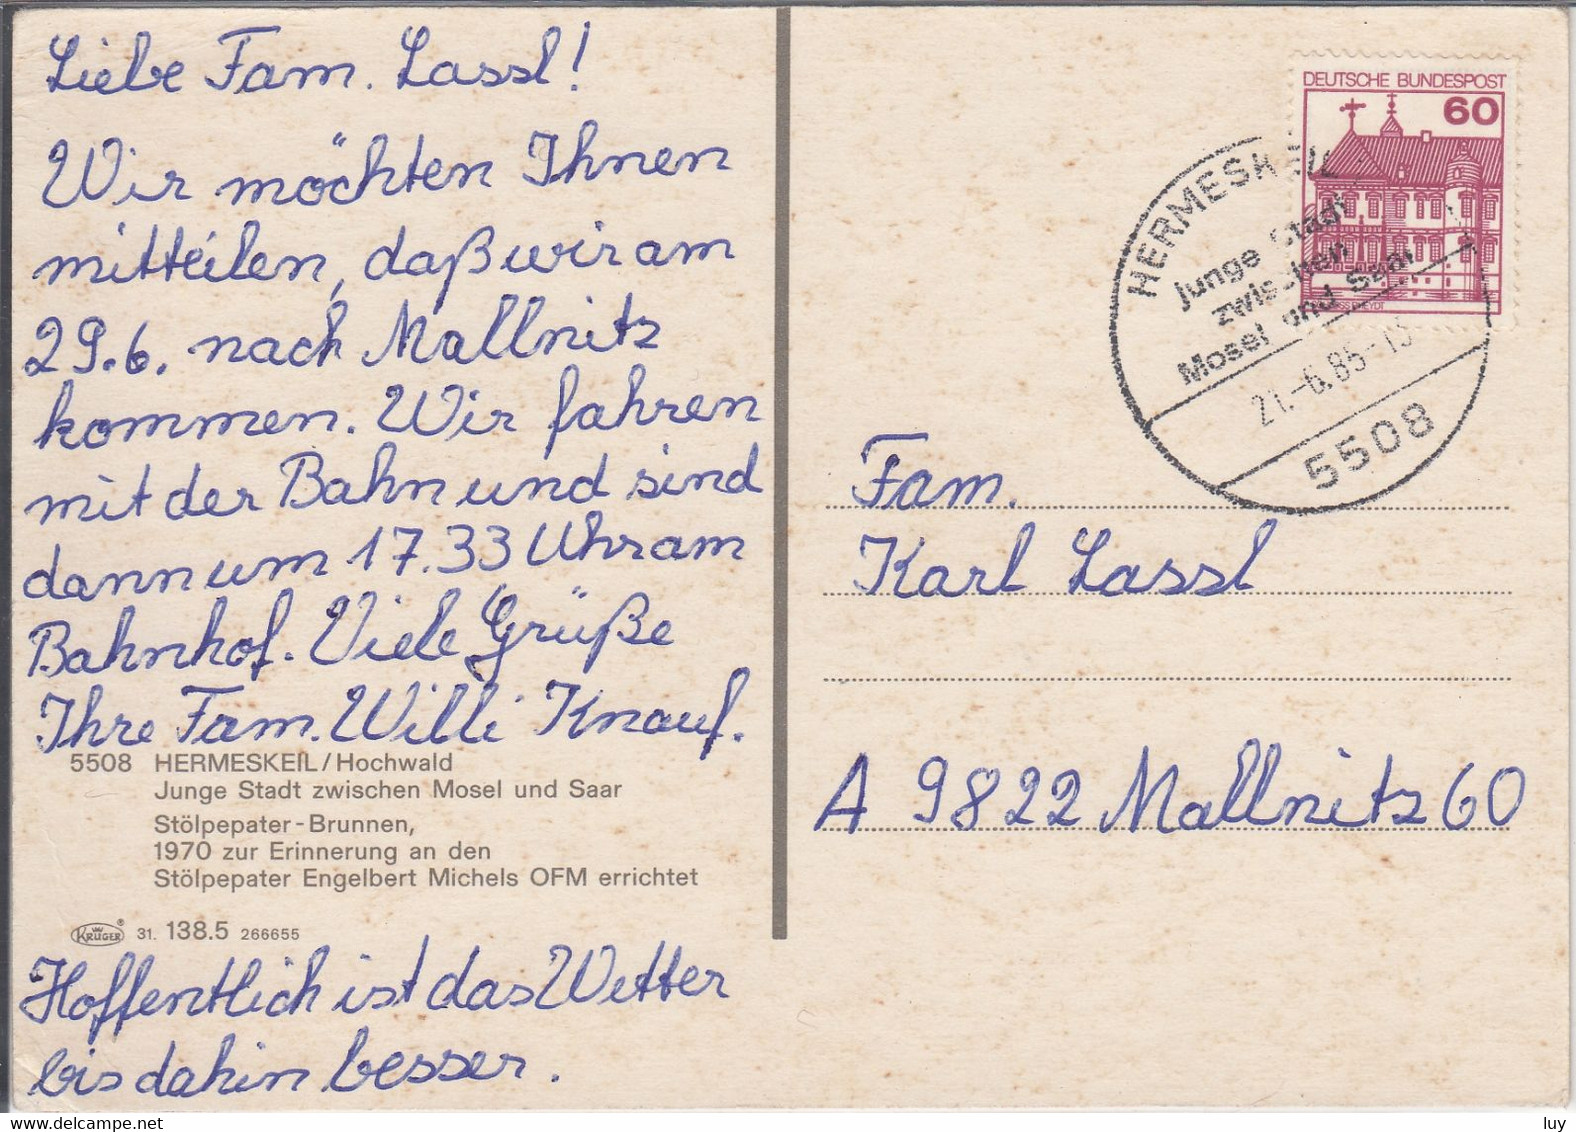 Liebe Fam. Lassl!
Wir möchten Ihnen
mitteilen, daß wir am
29.6. nach Mallnitz
kommen. Wir fahren
mit der Bahn und sind
dann um 17.33 Uhr am
Bahnhof. Viele Grüße
Ihre Fam. Willi Knauf.
5508 HERMESKEIL/Hochwald
Junge Stadt zwischen Mosel und Saar
Stölpepater-Brunnen,
1970 zur Erinnerung an den
Stölpepater Engelbert Michels OFM errichtet
KRÜGER® 31. 138.5 266655
Hoffentlich ist das Wetter
bis dahin besser.
DEUTSCHE BUNDESPOST
60
HERMESKEIL
Junge Stadt
zwischen
Mosel und Saar
-6.85-
5508
Fam.
Karl Lassl
A 9822 Mallnitz 60